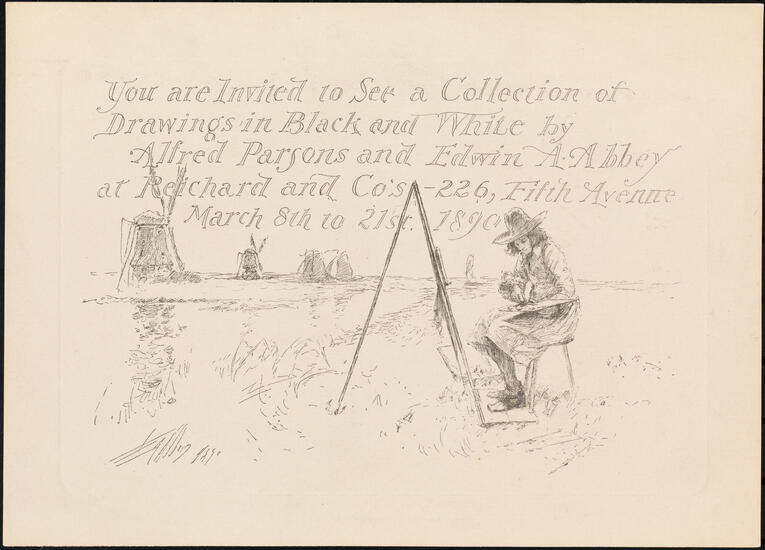 You are Invited to See a Collection of
Drawings in Black and White by
Alfred Parsons and Edwin A. Abbey
at Reichard and Co's - 226, Fifth Avenue
March 8th to 21st. 1890